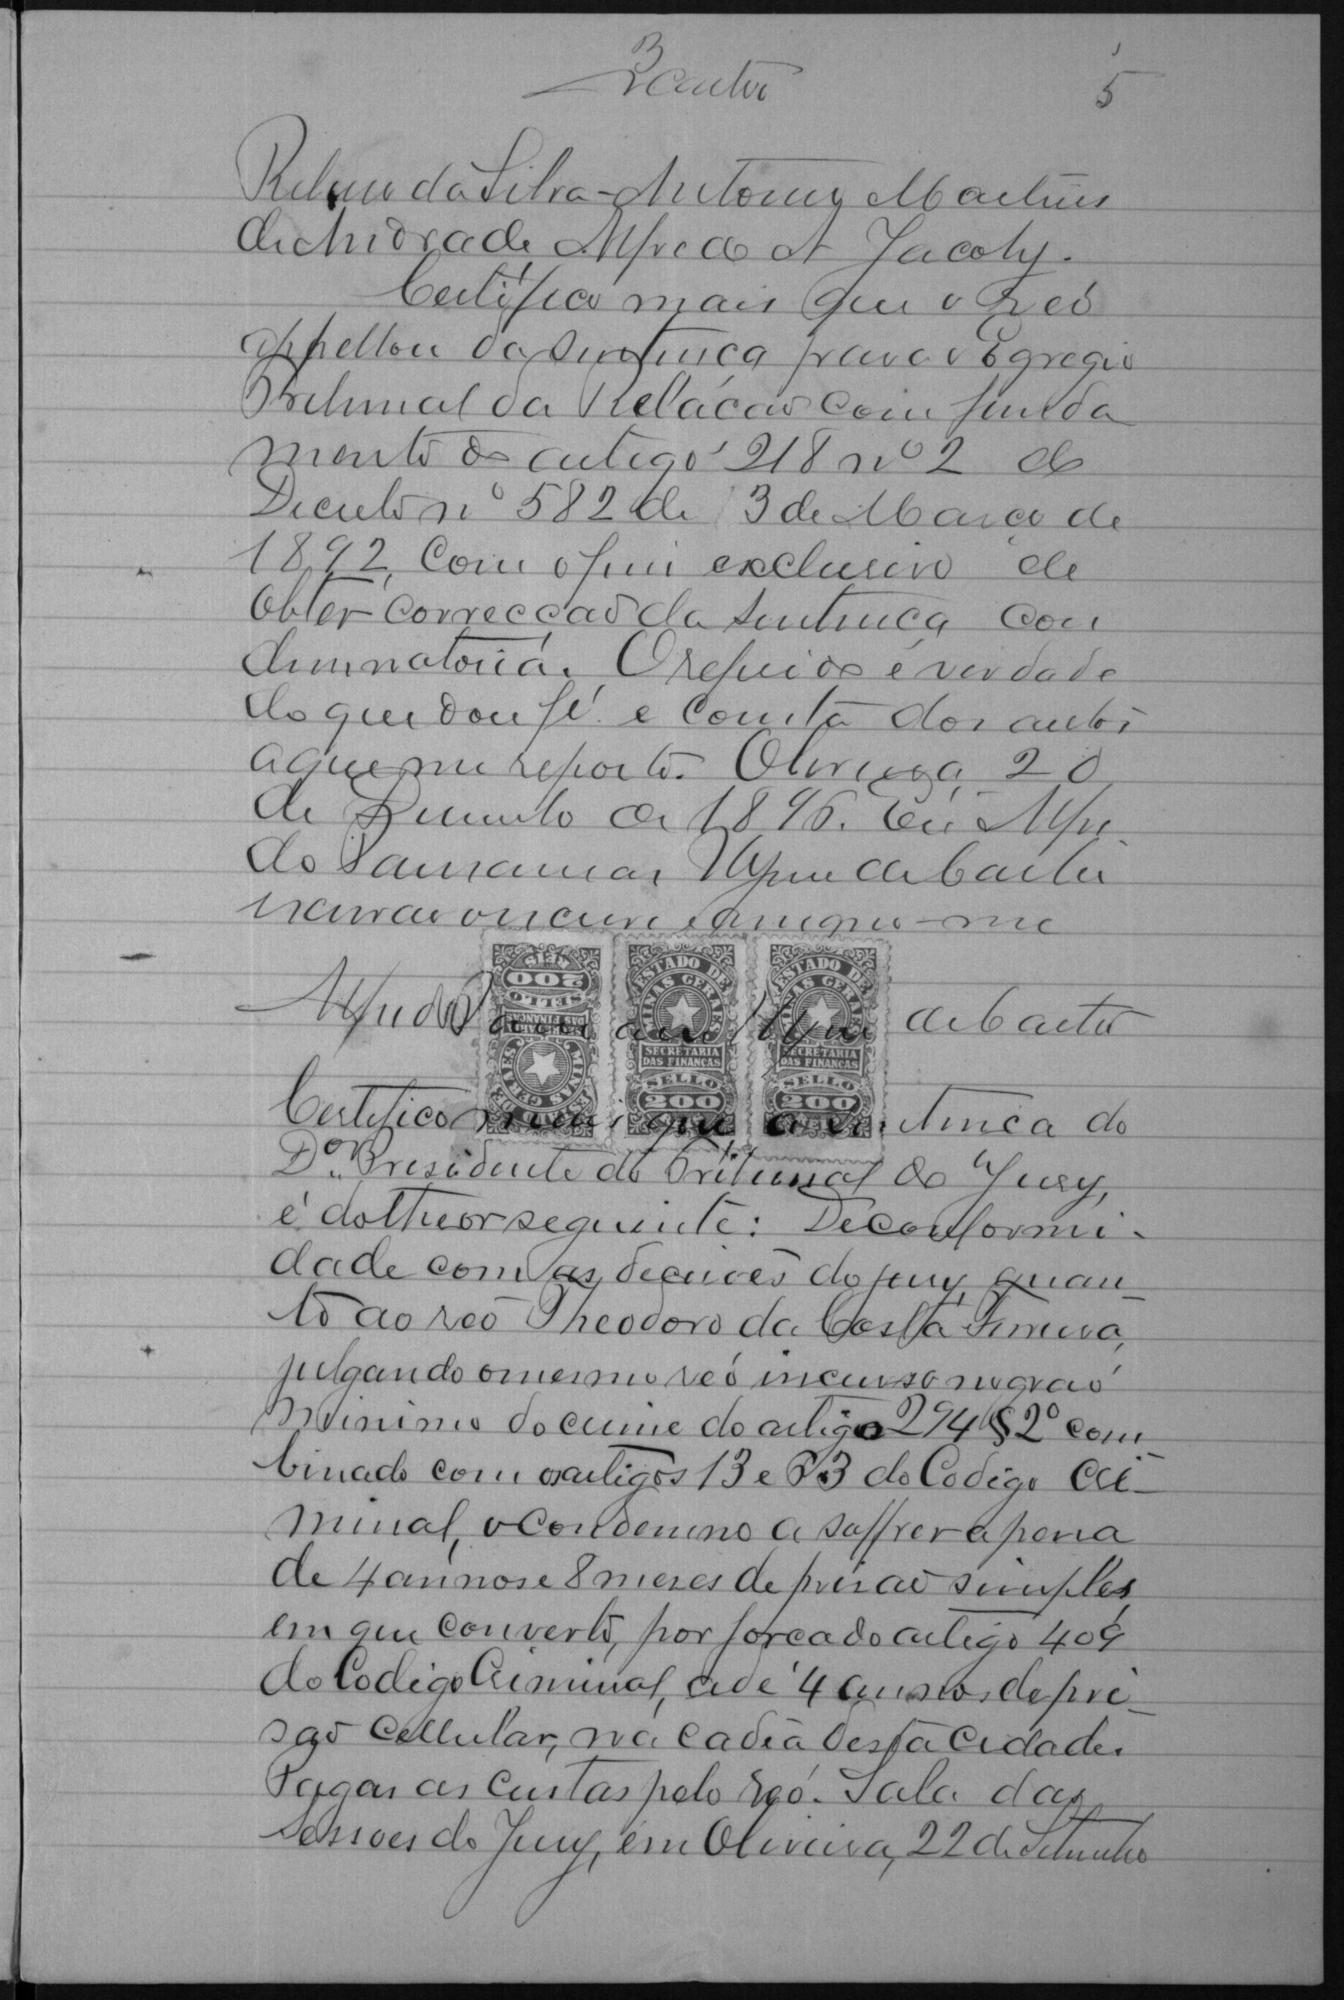 5
da Silva - Antonio Martins
de Andrade, Alfredo A Jacoby.
Certifico mais que o reó
appellou da sentença para o Egregio
Tribunal da Relação com funda
mento do artigo 218 nº 2 do
Decreto nº 582 de 3 de Março de
1892, com o fim exclusivo de
obter correcção da sentença con
demnatoria. O referido é verdade
do que dou fé e consta dos autos
a que me reporto. Oliveira, 20
de de 1896. Eu Alfre
do de Castro
escrivão escrevi e assigno-me
Alfredo de Castro
ESTADO DE MINAS GERAES
SECRETARIA DAS FINANÇAS
SELLO
200
REIS
ESTADO DE MINAS GERAES
SECRETARIA DAS FINANÇAS
SELLO
200
ESTADO DE MINAS GERAES
SECRETARIA DAS FINANÇAS
SELLO
200
Certifico mais que a sentença do
Dor. Presidente do Tribunal do Jury,
é do theor seguinte: De conformi-
dade com as decisões do jury, quan-
to ao reó Theodoro da Costa Ferreira,
julgando o mesmo reó incurso no graó
minimo do crime do artigo 294 § 2º com-
binado com os artigos 13 e 63 do Codigo Cri-
minal, o condemno a soffrer a pena
de 4 annos e 8 meses de prisão simples,
em que converto, por força do artigo 409
do Codigo Criminal, a de 4 annos de pri-
são cellular, na cadêa desta cidade.
Pagas as custas pelo reó. Sala das
Sessoes do Jury, em Oliveira, 22 de Setembro